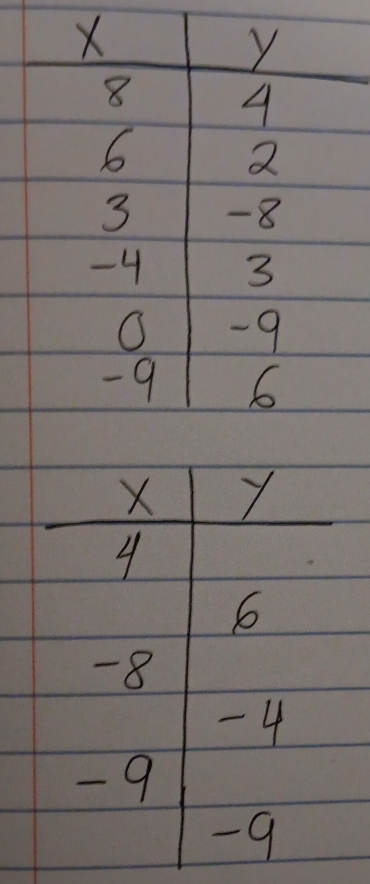 X Y
8 4
6 2
3 -8
-4 3
0 -9
-9 6
X Y
4
6
-8
-4
-9
-9